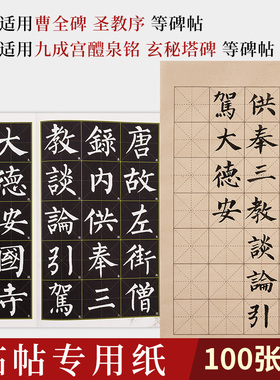 适用曹全碑 圣教序 等碑帖
适用九成宫醴泉铭 玄秘塔碑 等碑帖
唐故左街僧
錄内供奉三
教談論引駕
大德安國寺
供奉三教談論引
駕大德安
临帖专用纸
100张